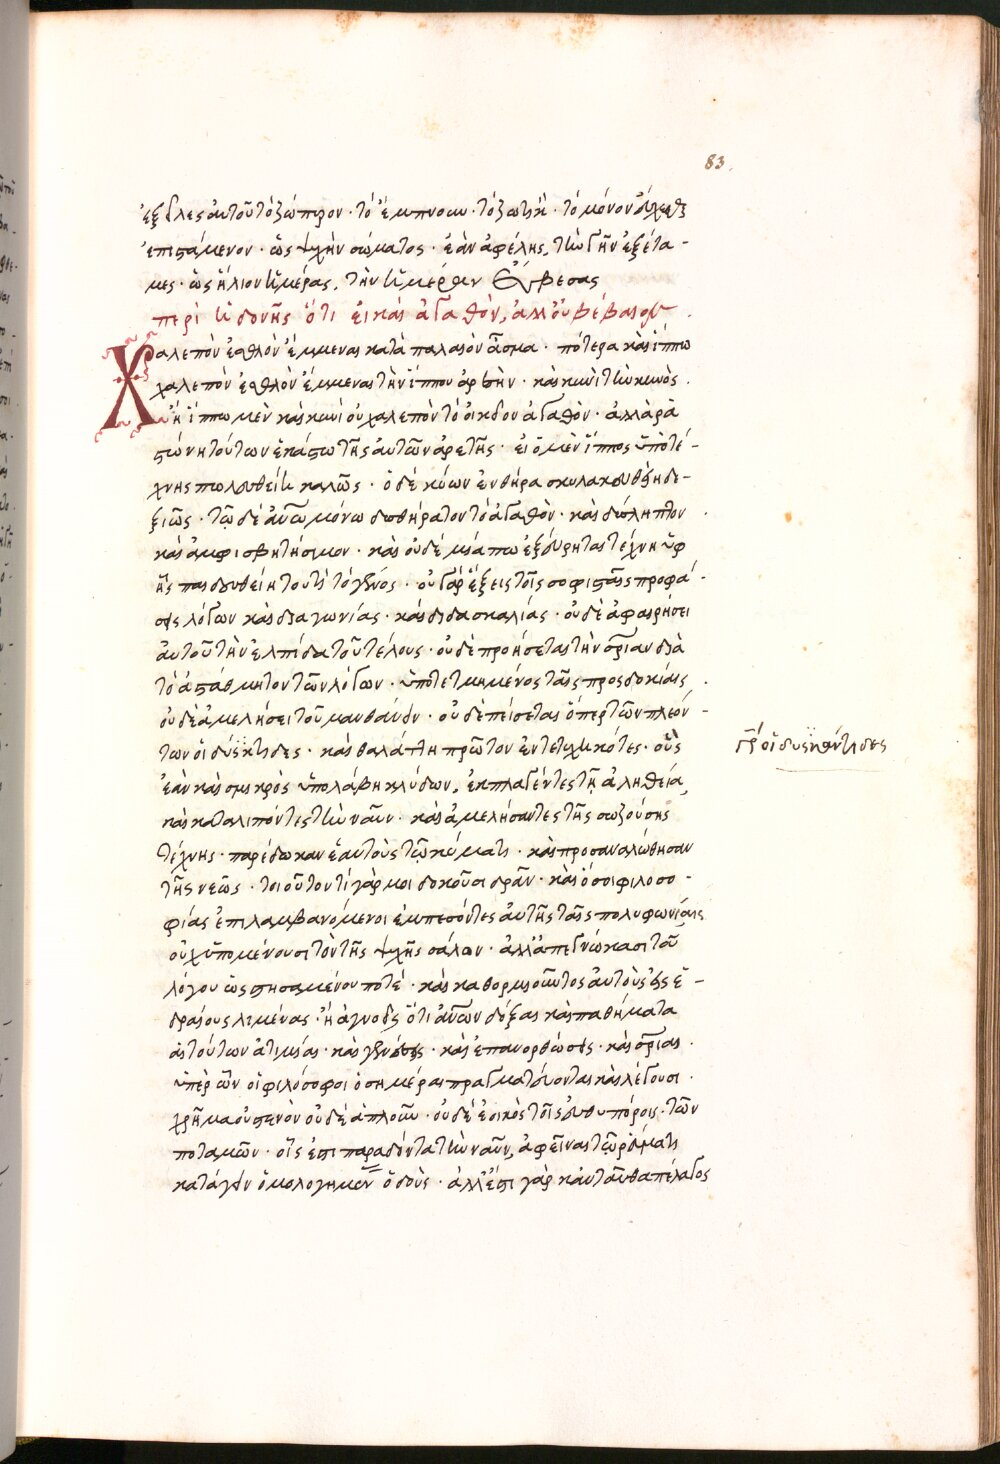 83
ἐξέλῃς αὐτοῦ τὸ ζώπυρον · τὸ ἔμπνουν · τὸ ζωτικὸν · τὸ μόνον ἄρχεσθαι
ἐπιστάμενον · ὡς ψυχὴν σώματος · ἐὰν ἀφέλῃς, τὴν γῆν ἐξέτα -
μες · ὡς ἥλιον ἡμέρας, τὴν ἡμέραν ἔσβεσας
περὶ ἡδονῆς ὅτι εἰ καὶ ἀγαθὸν, ἀλλ' οὐ βέβαιον .
Χαλεπὸν ἐσθλὸν ἔμμεναι κατὰ παλαιὸν ᾆσμα · πότερα καὶ ἵππῳ
χαλεπὸν ἐσθλὸν ἔμμεναι τὴν ἵππου ἀρετὴν · καὶ κυνὶ τὴν κυνὸς .
ἢ ἵππῳ μὲν καὶ κυνὶ οὐ χαλεπὸν τὸ οἰκεῖον ἀγαθὸν · ἀλλὰ ῥᾳ
στώνη τούτων ἑκάστῳ τῆς αὐτῶν ἀρετῆς · εἰ ὁ μὲν ἵππος ὑπὸ τέ -
χνης πωλευθείη καλῶς · ὁ δὲ κύων ἐν θήρᾳ σκυλακευθείη δε -
ξιῶς · τῷ δὲ ἀνθρώπῳ μόνῳ δυσθήρατον τὸ ἀγαθὸν · καὶ δύσληπτον .
καὶ ἀμφισβητήσιμον · καὶ οὐδέ μιά πω ἐξεύρηται τέχνη ὑφ
ἧς παιδευθείη τουτὶ τὸ γένος · οὐ γὰρ ἕξεις τοῖς σοφισταῖς προφά -
σεις λόγων καὶ διαγωνίας · καὶ διδασκαλίας · οὐδὲ ἀφαιρήσει
αὐτοῦ τὴν ἐλπίδα τοῦ τέλους · οὐδὲ προήσεται τὴν θεωρίαν διὰ
τὸ ἀστάθμητον τῶν λόγων · ὑποτετμημένος ταῖς προςδοκίαις .
οὐδὲ ἀμελήσει τοῦ μανθάνειν · οὐδὲ πείσεται ὅπερ τῶν πλεόν -
των οἱ δύσκτιδες · καὶ θαλάττῃ πρῶτον ἐντετυχηκότες · οὓς
ἐὰν καὶ σμικρὸς ὑπολάβῃ κλύδων, ἐκπλαγέντες τῇ ἀληθείᾳ
καὶ καταλιπόντες τὴν ναῦν · καὶ ἀμελήσαντες τῆς σωζούσης
τέχνης · παρέδωκαν ἑαυτοὺς τῷ κύματι · καὶ προσαναλώθησαν
τῆς νεῶς · τοιοῦτον τί γάρ μοι δοκοῦσι δρᾶν · καὶ ὅσοι φιλοσο -
φίας ἐπιλαμβανόμενοι ἐμπεσόντες αὐτῆς ταῖς πολυφωνίαις
οὐχ ὑπομένουσι τὸν τῆς ψυχῆς σάλον · ἀλλ' ἀπεγνώκασι τοῦ
λόγου ὡς στησομένου ποτέ · καὶ καθορμιοῦντος αὐτοὺς εἰς ἑ -
δραίους λιμένας · ἢ ἀγνοεῖς ὅτι ἀνθρώπων δόξας καὶ παθήματα
ἀστούτων ἀτιμίας · καὶ γενέσεις · καὶ ἐπανορθώσεις · καὶ θεωρίας .
ὑπὲρ ὧν οἱ φιλόσοφοι ὁσημέραι πραγματεύονται καὶ λέγουσι .
χρῆμα οὐ στενὸν οὐδὲ ἁπλοῦν · οὐδὲ ἐοικὸς τοῖς εὐθυπόροις τῶν
ποταμῶν · οἷς ἔστι παραδόντα τὴν ναῦν, ἀφεῖναι τῷ ῥεύματι
κατάγειν ὁμολογημένην ὁδοὺς · ἀλλ' ἔστι γὰρ κἀνταῦθα πέλαγος
γρ οἱ δυςηθέντιδες